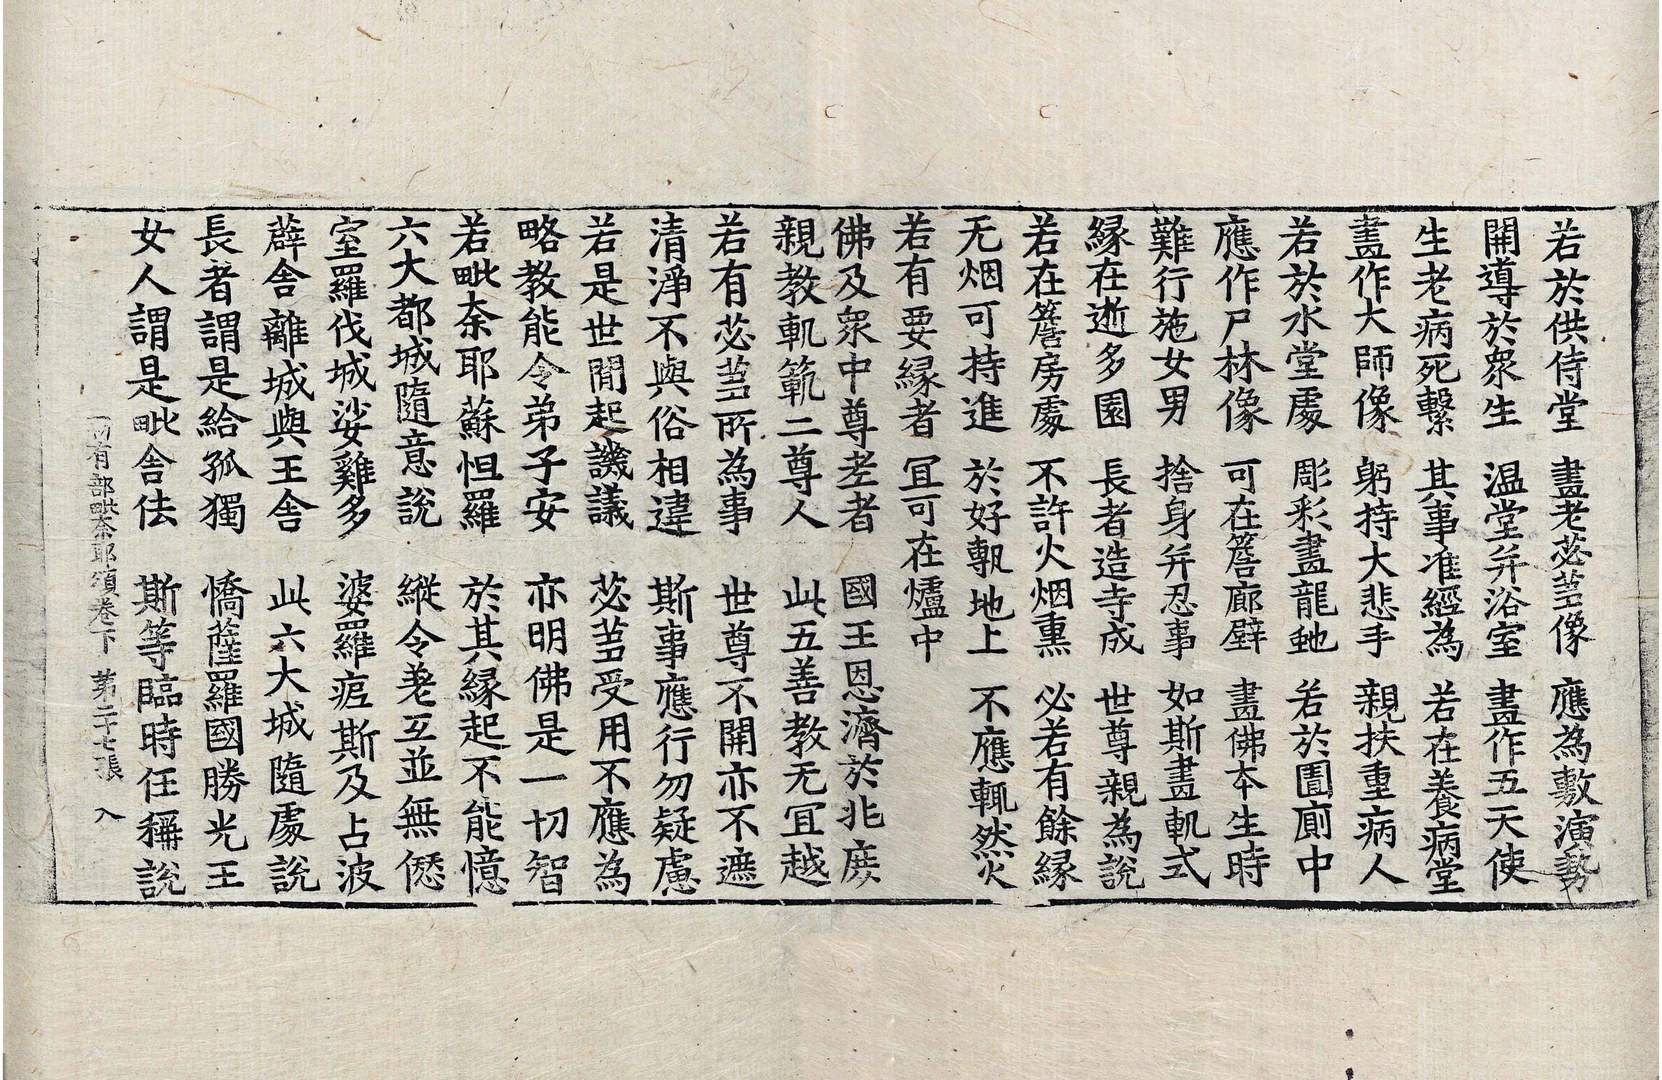 若於供侍堂 畫老苾芻像 應為敷演勢
開導於衆生 温堂并浴室 畫作五天使
生老病死繫 其事准經為 若在養病堂
畫作大師像 躬持大悲手 親扶重病人
若於水堂處 彫彩畫龍虵 若於圊廁中
應作尸林像 可在簷廊壁 畫佛本生時
難行施女男 捨身并忍事 如斯畫軌式
縁在逝多園 長者造寺成 世尊親為說
若在簷房處 不許火烟熏 必若有餘縁
无烟可持進 於好甎地上 不應輒然火
若有要縁者 冝可在爐中
佛及衆中尊老者 國王恩濟於兆庶
親教軌範二尊人 此五善教无冝越
若有苾芻所為事 世尊不開亦不遮
清淨不與俗相違 斯事應行勿疑慮
若是世間起譏議 苾芻受用不應為
略教能令弟子安 亦明佛是一切智
若毗奈耶蘇怛羅 於其縁起不能憶
六大都城隨意說 縱令差互並無愆
室羅伐城娑雞多 婆羅痆斯及占波
薜舍離城與王舍 此六大城隨處說
長者謂是給孤獨 憍薩羅國勝光王
女人謂是毗舍佉 斯等臨時任稱說
有部毗奈耶頌卷下 第二十七張 入